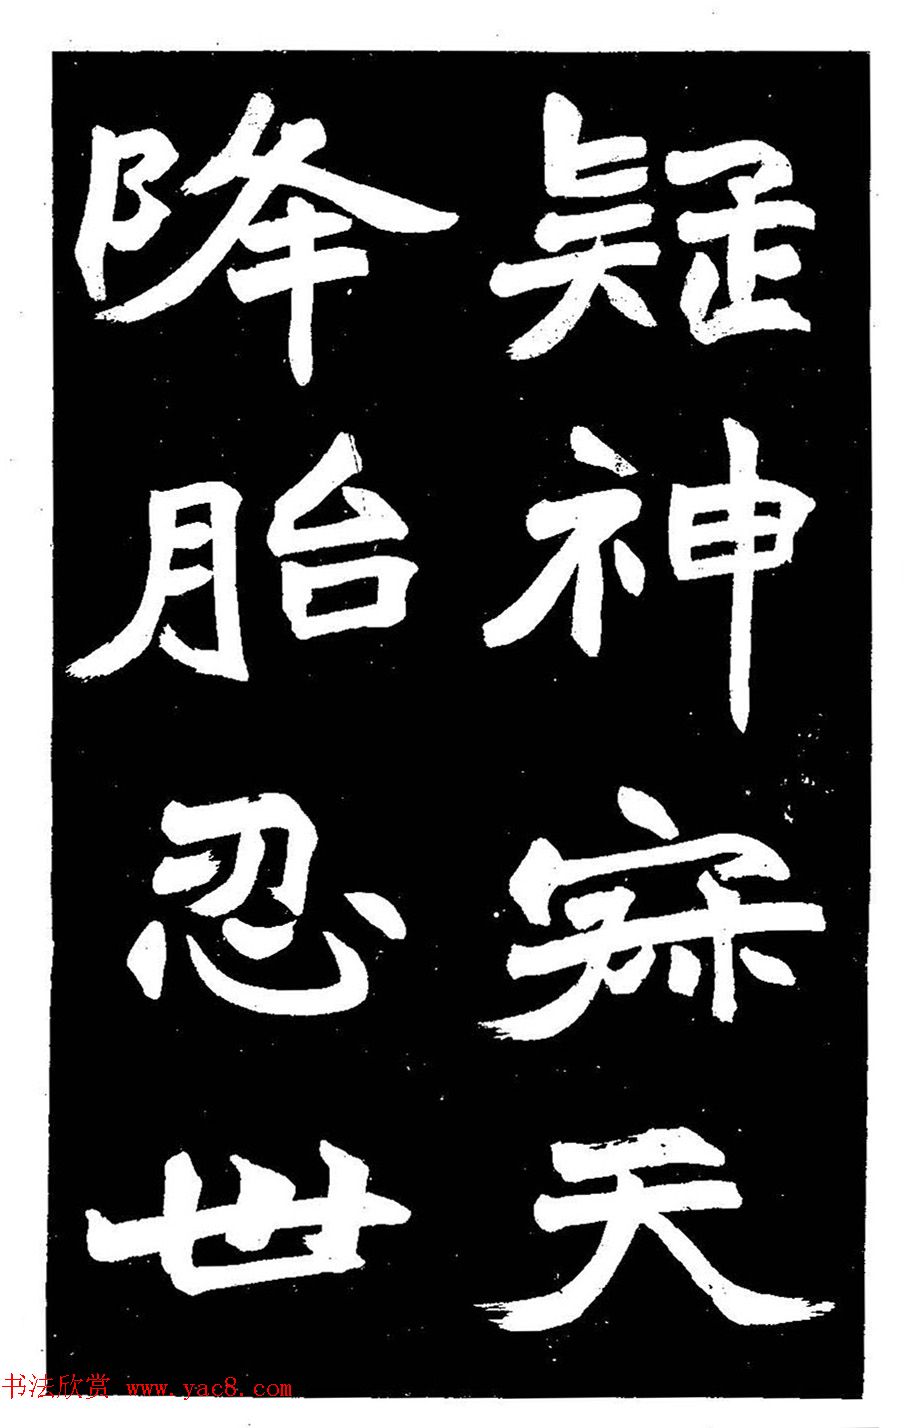 疑神㝥天
降胎忍世
书法欣赏 www.yac8.com